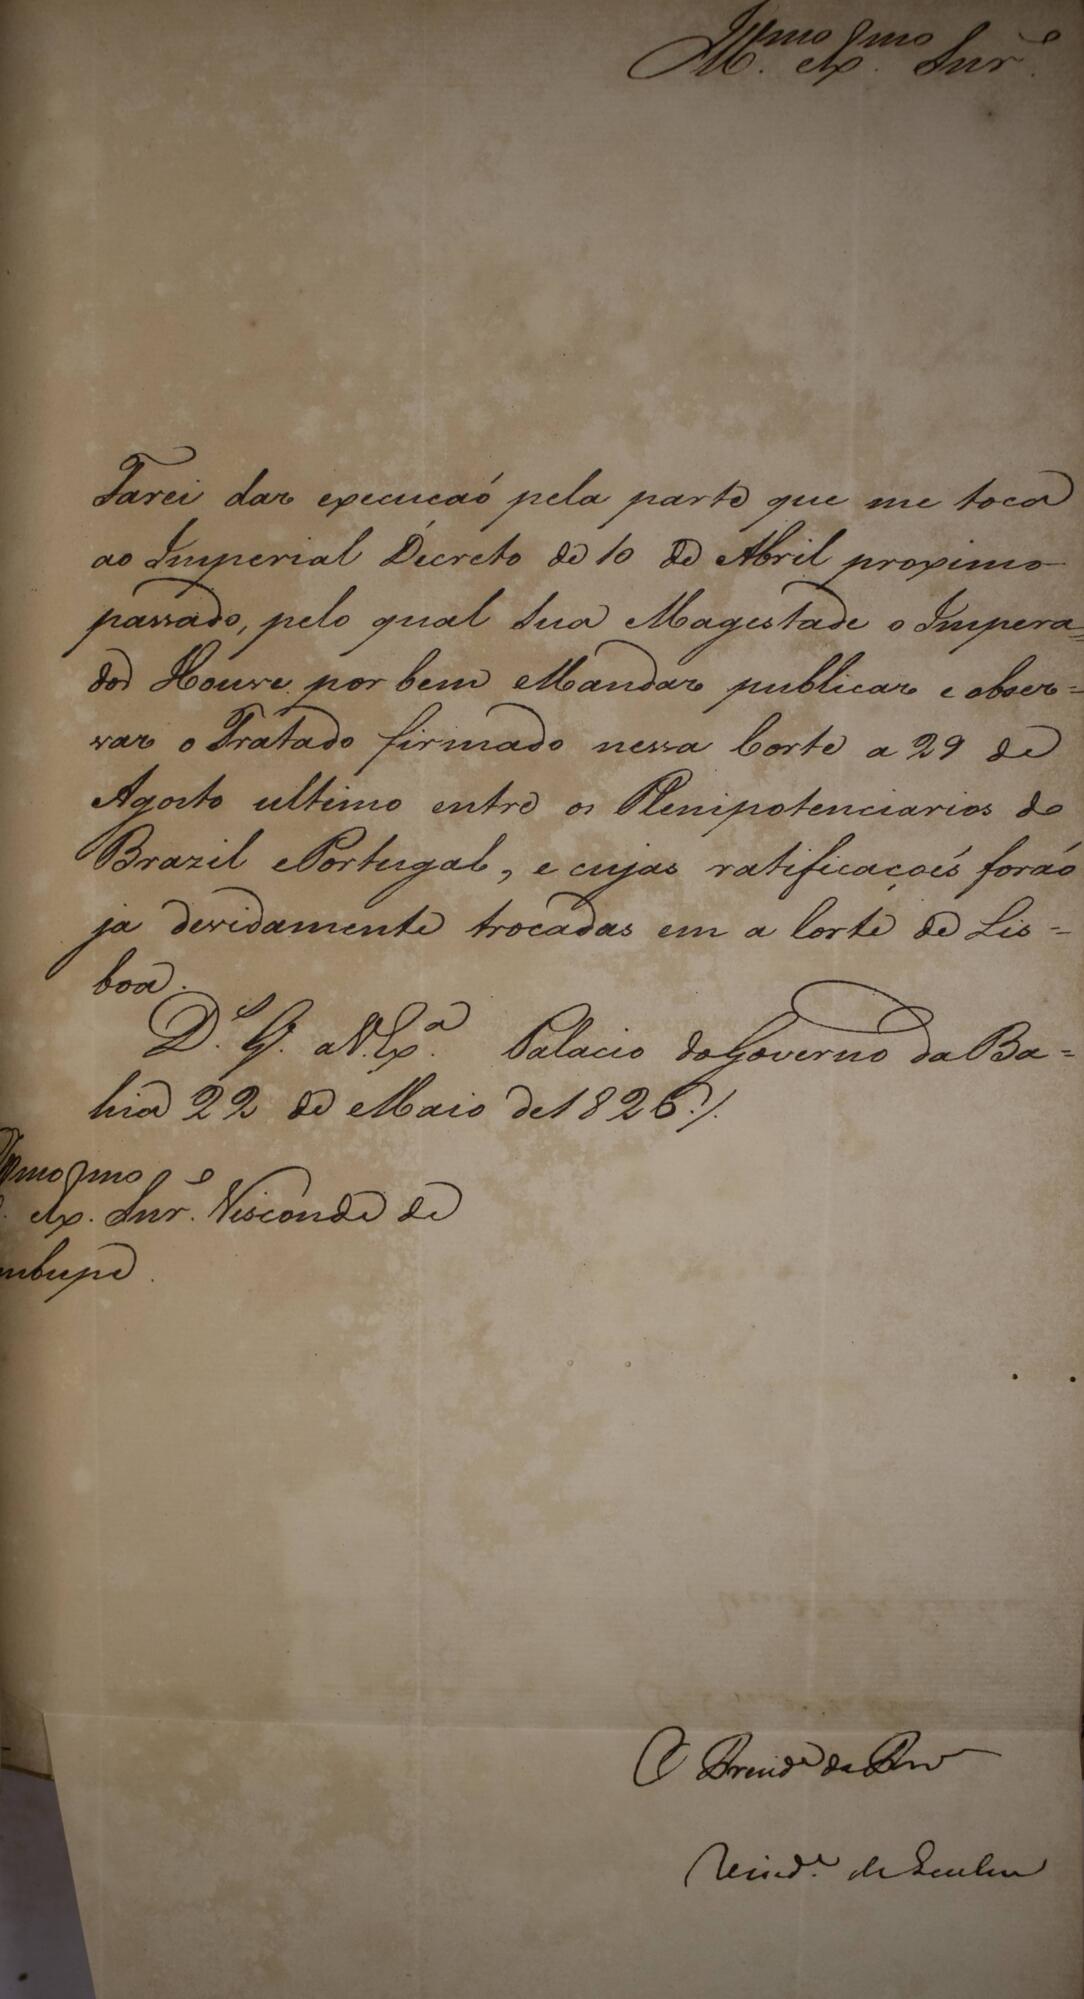 Ill.mo Ex.mo Snr.e
Farei dar execucaó pela parte que me toca
ao Imperial Decreto de 10 de Abril proximo
passado, pelo qual Sua Magestade o Impera=
dor Houve por bem Mandar publicar e obser=
var o Tratado firmado nessa Corte a 29 de
Agosto ultimo entre os Plenipotenciarios do
Brazil e Portugal, e cujas ratificaçoés foraó
ja devidamente trocadas em a Corte de Lis=
boa.
D.s G. a V. Ex.a Palacio do Governo da Ba=
hia 22 de Maio de 1826./.
mo Ex.mo Snr.e Visconde de
mbupe.
O Presid.e da Prov
Visd.e de